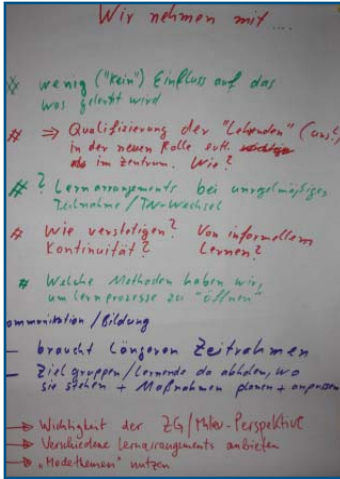 Wir nehmen mit...
# wenig ("kein") Einfluss auf das
was gelernt wird
# ⇒ Qualifizierung der "Lehrenden" (uns!)
in der neuen Rolle evtl.
im Zentrum. Wie?
# ? Lernarrangements bei unregelmäßiger
Teilnahme / TN-Wechsel
# Wie verstetigen? Von informellem
Kontinuität? Lernen?
# Welche Methoden haben wir,
um Lernprozesse zu "öffnen"
ommunikation / Bildung
– braucht längeren Zeitrahmen
– Zielgruppen / Lernende da abholen, wo
sie stehen + Maßnahmen planen + anpassen
→ Wichtigkeit der ZG / -Perspektive
→ Verschiedene Lernarrangements anbieten
→ "Modethemen" nutzen